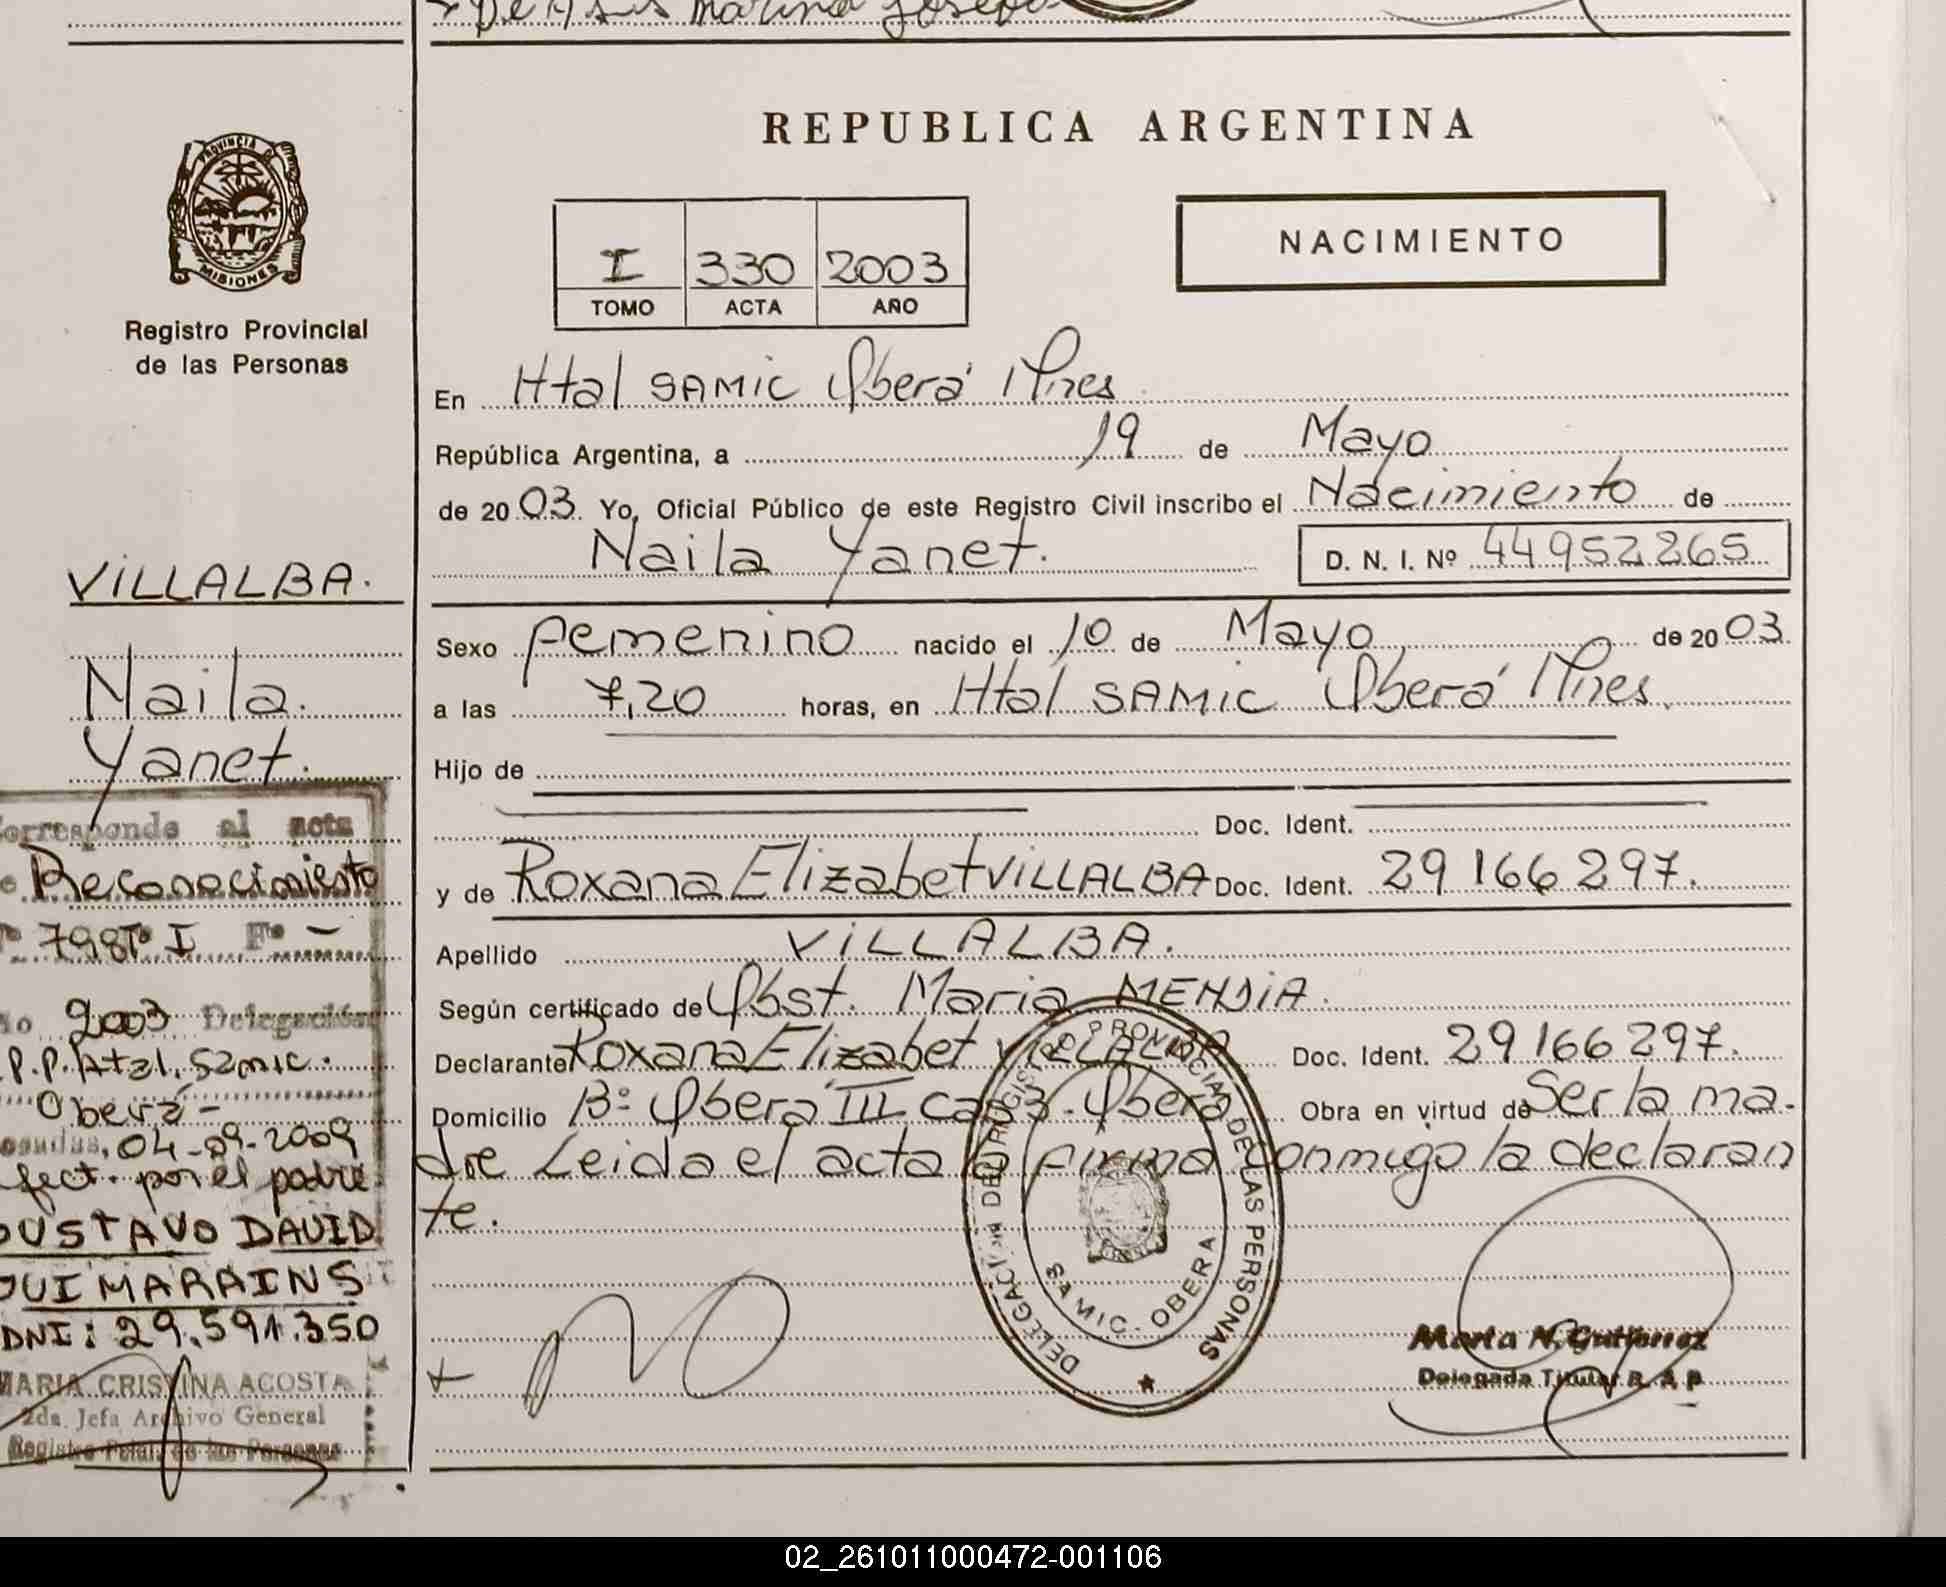 De Asis Marina
REPUBLICA ARGENTINA
PROVINCIA DE
MISIONES
Registro Provincial
de las Personas
I 330 2003
TOMO ACTA AÑO
NACIMIENTO
En Htal SAMIC Oberá Mnes
República Argentina, a 19 de Mayo
de 2003. Yo, Oficial Público de este Registro Civil inscribo el Nacimiento de
Naila Yanet. D. N. I. Nº 44952265
Sexo femenino nacido el 10 de Mayo de 2003.
a las 7,20 horas, en Htal SAMIC Oberá Mnes.
Hijo de
Doc. Ident.
y de Roxana Elizabet VILLALBA Doc. Ident. 29166297.
Apellido VILLALBA.
Según certificado de Obst. Maria MENDIA.
Declarante Roxana Elizabet VILLALBA Doc. Ident. 29166297.
Domicilio Bº Oberá III cas 3. Oberá Obra en virtud de Ser la ma-
dre Leida el acta la firma conmigo la declaran
te.
DELEGACION DEL REGISTRO PROVINCIAL DE LAS PERSONAS
SAMIC. OBERA
Marta N. Gutierrez
Delegada Titular R. P. P
VILLALBA.
Naila
Yanet.
Corresponde al acta
Reconocimiento
798 Tº I Fº -
2003 Delegación
P.P. Htal. Samic.
Oberá-
Posadas, 04-09-2009
fect. por el padre
GUSTAVO DAVID
GUIMARAINS
DNI: 29.591.350
MARIA CRISTINA ACOSTA
2da. Jefa Archivo General
Registro Pcial. de las Personas
02_261011000472-001106